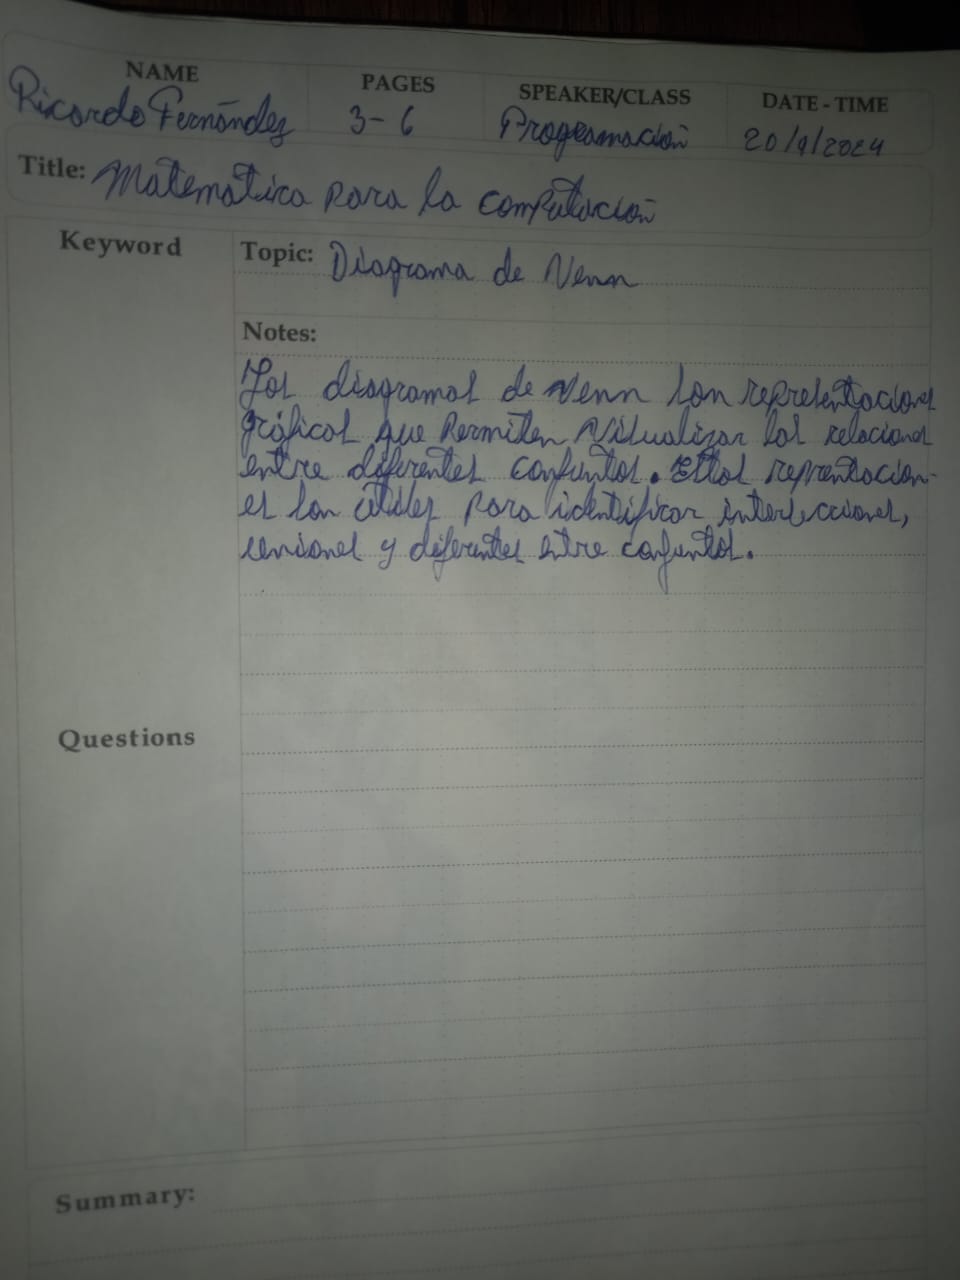 NAME PAGES SPEAKER/CLASS DATE - TIME
Ricardo Fernández 3-6 Programación 20/9/2024
Title: Matemática para la computación
Keyword
Topic: Diagrama de Venn
Notes:
Los diagramas de Venn son representaciones
gráficas que permiten visualizar las relaciones
entre diferentes conjuntos. Estas reprentacion-
es son útiles para identificar intersecciones,
uniones y diferentes entre conjuntos.
Questions
Summary: